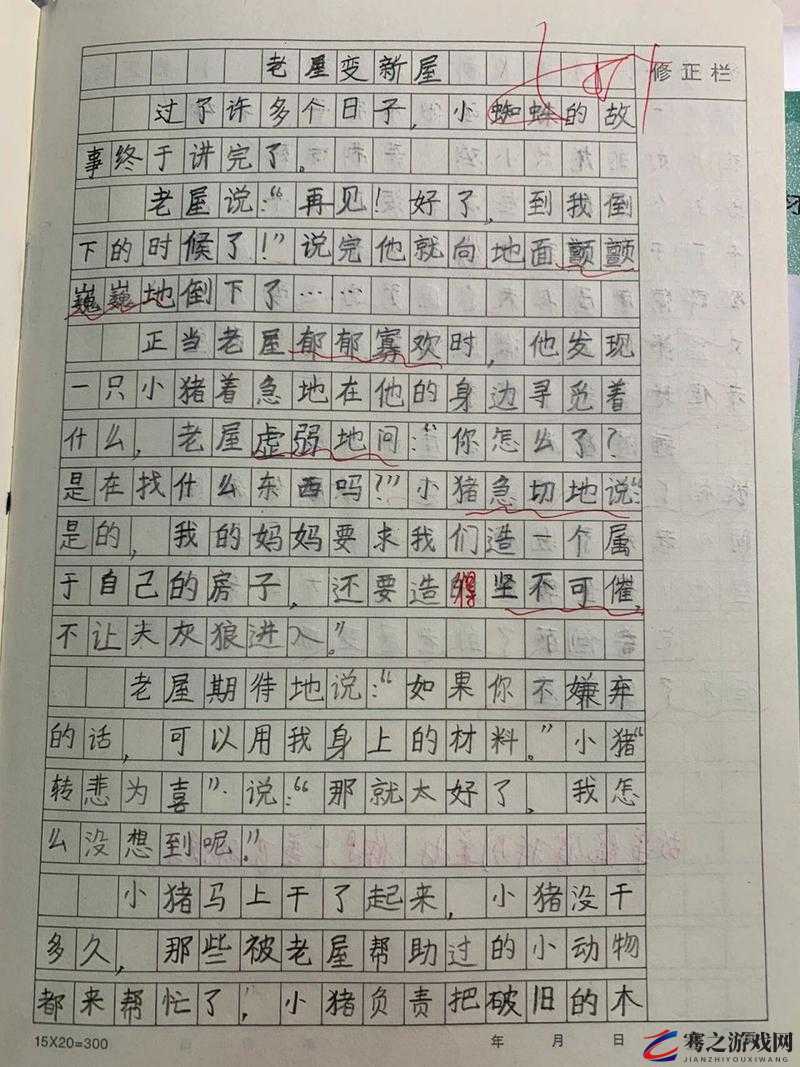 老屋变新屋
修正栏
过了许多个日子，小蜘蛛的故
事终于讲完了。
老屋说：“再见！好了，到我倒
下的时候了！”说完他就向地面颤颤
巍巍地倒下了……
正当老屋郁郁寡欢时，他发现
一只小猪着急地在他的身边寻觅着
什么，老屋虚弱地问：“你怎么了？
是在找什么东西吗？”小猪急切地说：“
是的，我的妈妈要求我们造一个属
于自己的房子，还要造得坚不可催，
不让大灰狼进入。”
老屋期待地说：“如果你不嫌弃
的话，可以用我身上的材料。”小猪“
转悲为喜”说：“那就太好了，我怎
么没想到呢。”
小猪马上干了起来，小猪没干
多久，那些被老屋帮助过的小动物
都来帮忙了，小猪负责把破旧的木
15X20=300
年 月 日
骞之游戏网
JIANZHIYOUXIWANG